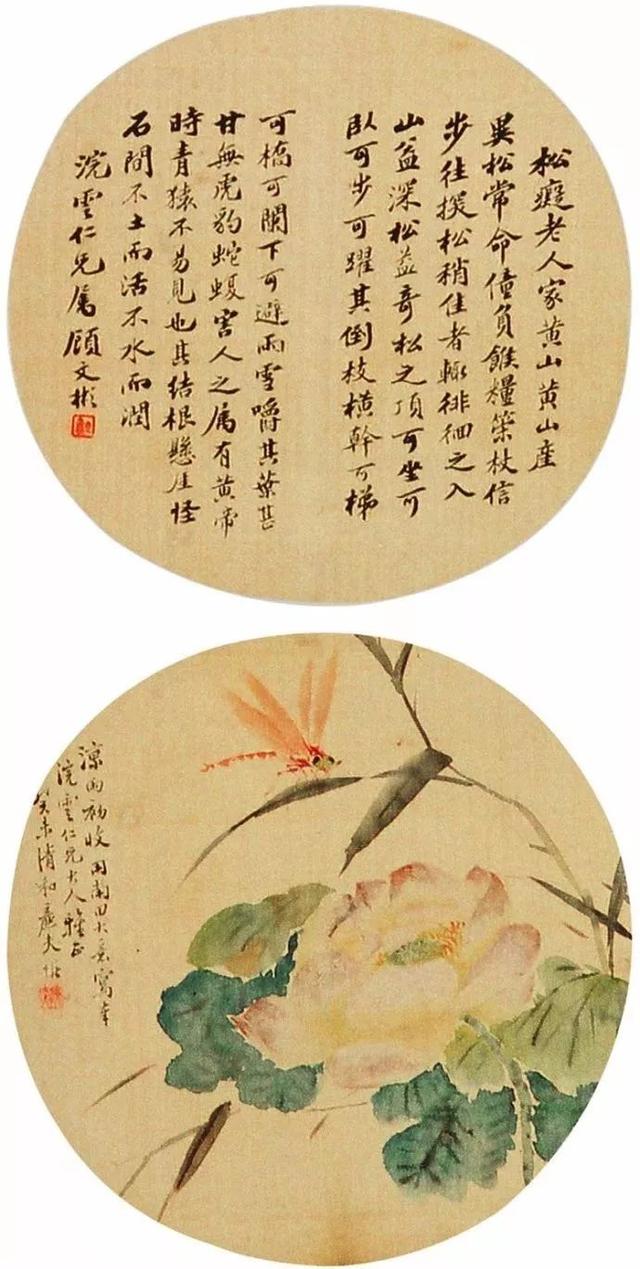 松癡老人家黄山黄山產
異松常命僮負餱糧築杖信
步往探松稍佳者輒徘徊之入
山益深松益奇松之頂可坐可
臥可步可躍其倒枝橫幹可梯
可橋可關下可避雨雪嚼其葉甚
甘無虎豹蛇蝮害人之属有黄帝
時青猿不易見也其結根懸厓怪
石間不土而活不水而潤
浣雲仁兄属顧文彬
涼雨初收用南田大意寫奉
浣雲仁兄大人雅正
癸未清和廉夫恢